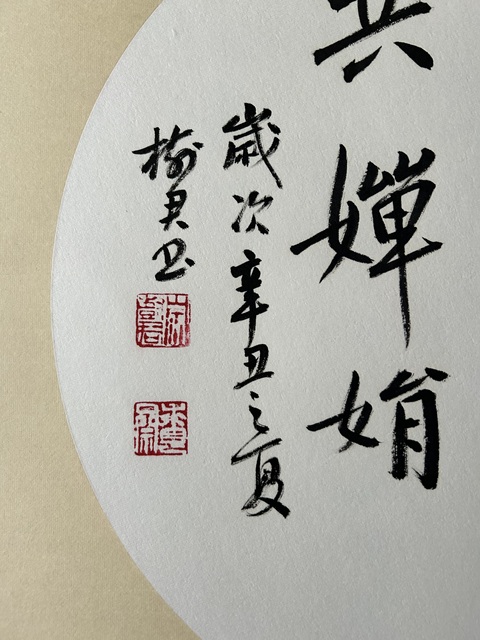 共嬋娟
歲次辛丑之夏
樹君书